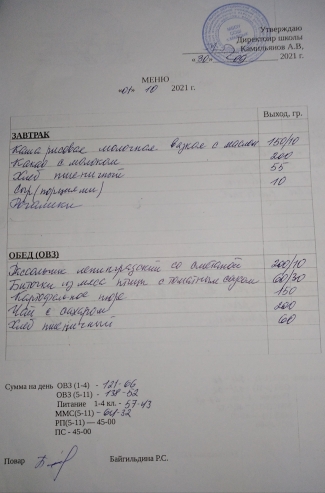 Утверждаю
Директор школы
Камильянов А.В,
«30» 2021 г.
МЕНЮ
«01» 10 2021 г.
Выход, гр.
ЗАВТРАК
Каша рисовая молочная вязкая с маслом 150/10
Какао с молоком 200
Хлеб пшеничный 55
Сыр (порциями) 10
ОБЕД (ОВЗ)
Рассольник ленинградский со сметаной 200/10
Биточки из мяса птицы с томатным соусом 60/30
Картофельное пюре 150
Чай с сахаром 200
Хлеб пшеничный 60
Сумма на день ОВЗ (1-4) - 121-66
ОВЗ (5-11) - 138-02
Питание 1-4 кл. - 57-43
ММС(5-11) - 64-32
РП(5-11) — 45-00
ПС - 45-00
Повар Байгильдина Р.С.